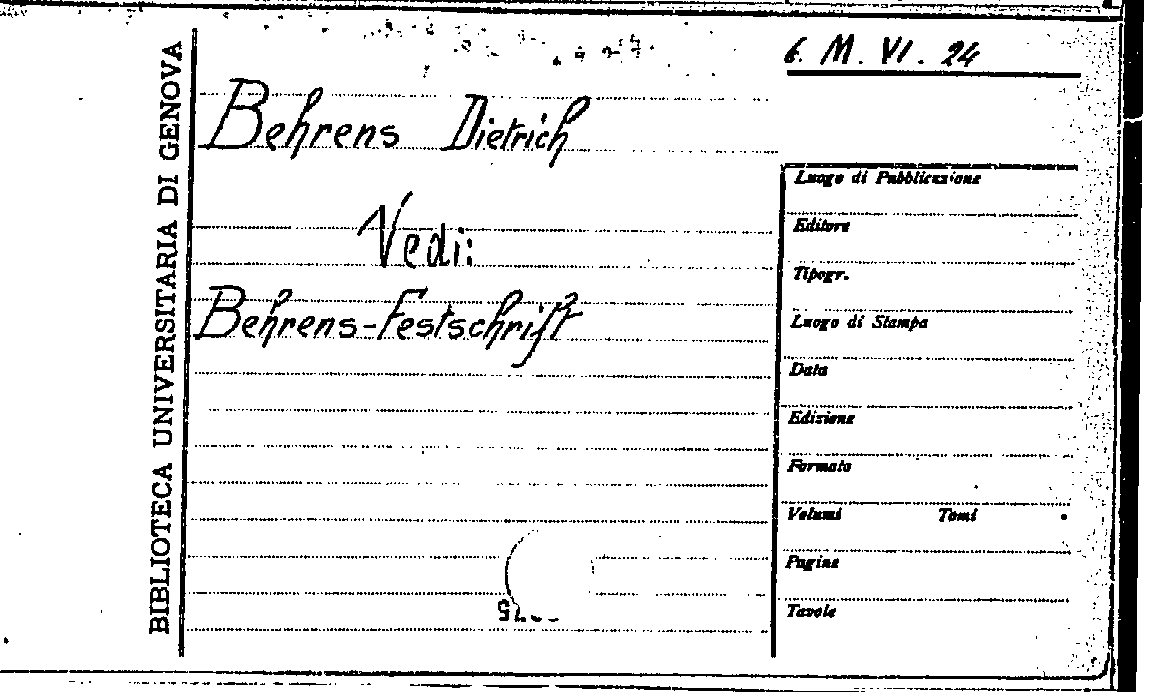 BIBLIOTECA UNIVERSITARIA DI GENOVA
6. M. VI. 24
Behrens Dietrich
Vedi:
Behrens-Festschrift
Luogo di Pubblicazione
Editore
Tipogr.
Luogo di Stampa
Data
Edizione
Formato
Volumi Tomi
Pagine
Tavole